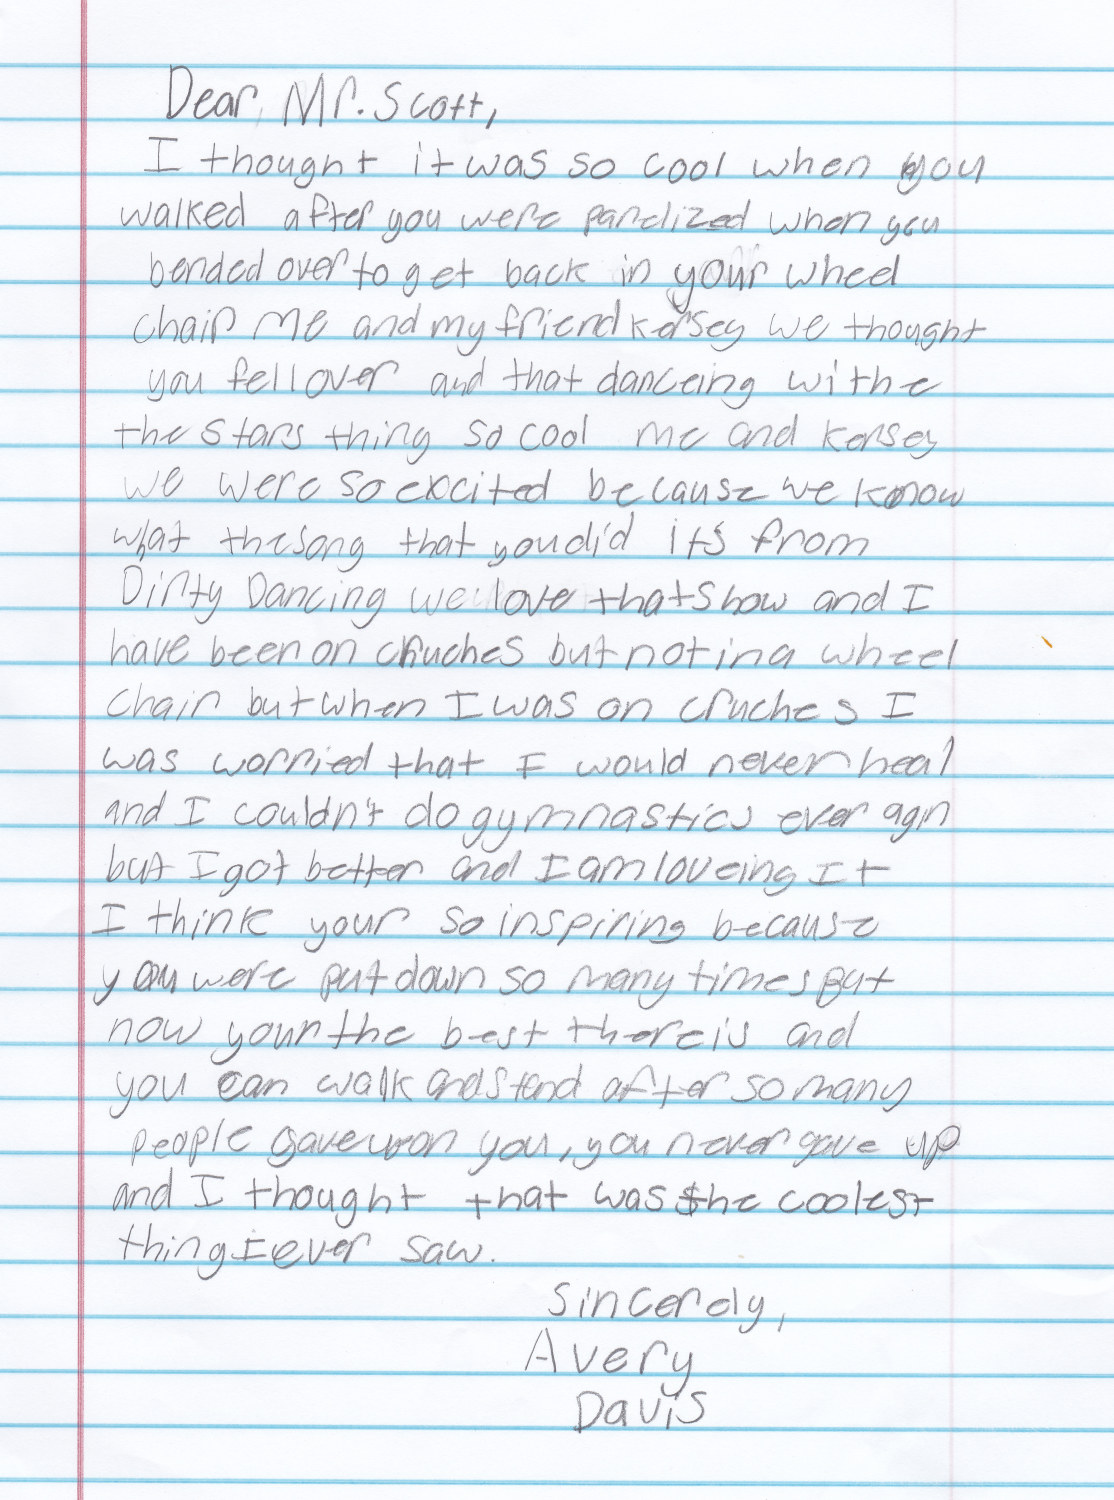 Dear, Mr. Scott,
I thought it was so cool when you
walked after you were parelized when you
bended over to get back in your wheel
chair me and my friend Kersey we thought
you fell over and that danceing withe
the stars thing so cool me and Kersey
we were so excited because we know
what the song that you did it's from
Dirty Dancing we love that show and I
have been on cruches but not in a wheel
chair but when I was on cruches I
was worried that I would never heal
and I couldn't do gymnastics ever agin
but I got better and I am loveing It
I think your so inspiring because
you were put down so many times But
now your the best there is and
you can walk and stand after so many
people gave up on you, you never gave up
and I thought that was the coolest
thing I ever saw.
Sincerely,
Avery
Davis